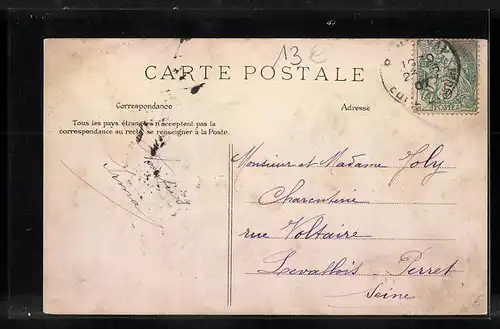 13 €
CARTE POSTALE
Correspondance
Adresse
Tous les pays étrangers n'acceptent pas la
correspondance au recto, se renseigner à la Poste.
Monsieur et Madame Joly
Charcuterie
rue Voltaire
Levallois-Perret
Seine
POSTES